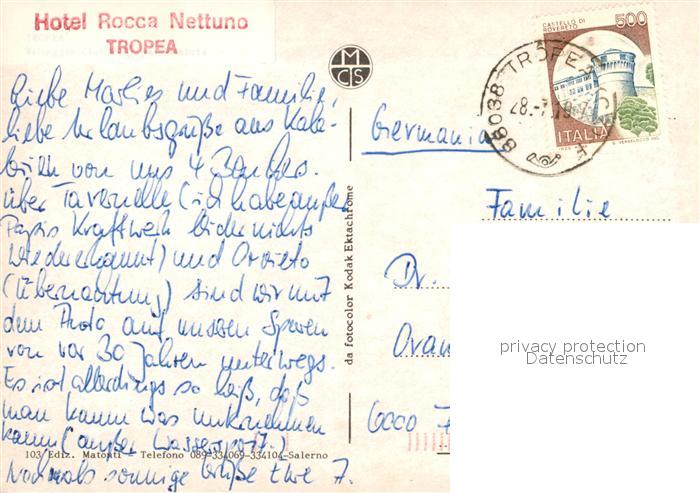 Hotel Rocca Nettuno
TROPEA
Liebe Marlies und Familie,
liebe Urlaubsgrüße aus Kala-
brien von uns 4
über Tavernelle (ich habe außer
Papis Kraftwerk leider nichts
wiedererkannt) und Orvieto
(Übernachtung) sind wir mit
dem Auto auf unseren Spuren
von vor 30 Jahren unterwegs.
Es ist allerdings so heiß, daß
man kaum was unternehmen
kann (außer Wassersport.)
Nochmals sonnige Grüße Eure A.
103 Ediz. Matonti - Telefono 089-334069-334104-Salerno
MCS
da fotocolor Kodak Ektachrome
CASTELLO DI
ROVERETO
500
ITALIA
88038 TROPEA
28.-7.
Germania
Familie
Dr.
Oran
6000 F
privacy protection
Datenschutz